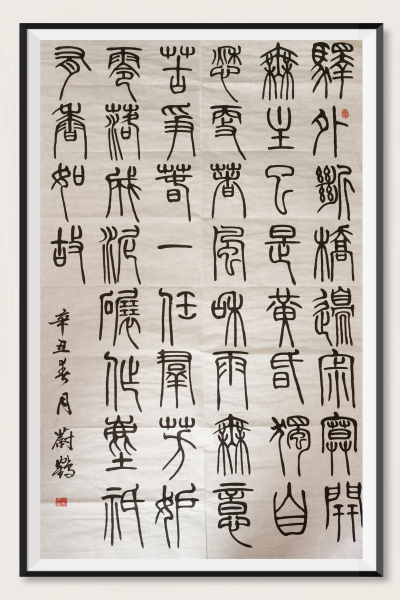 驛外斷橋邊寂寞開
無主已是黃昏獨自
愁更著風和雨無意
苦爭春一任羣芳妒
零落成泥碾作塵祇
有香如故
辛丑春月蔚鶴